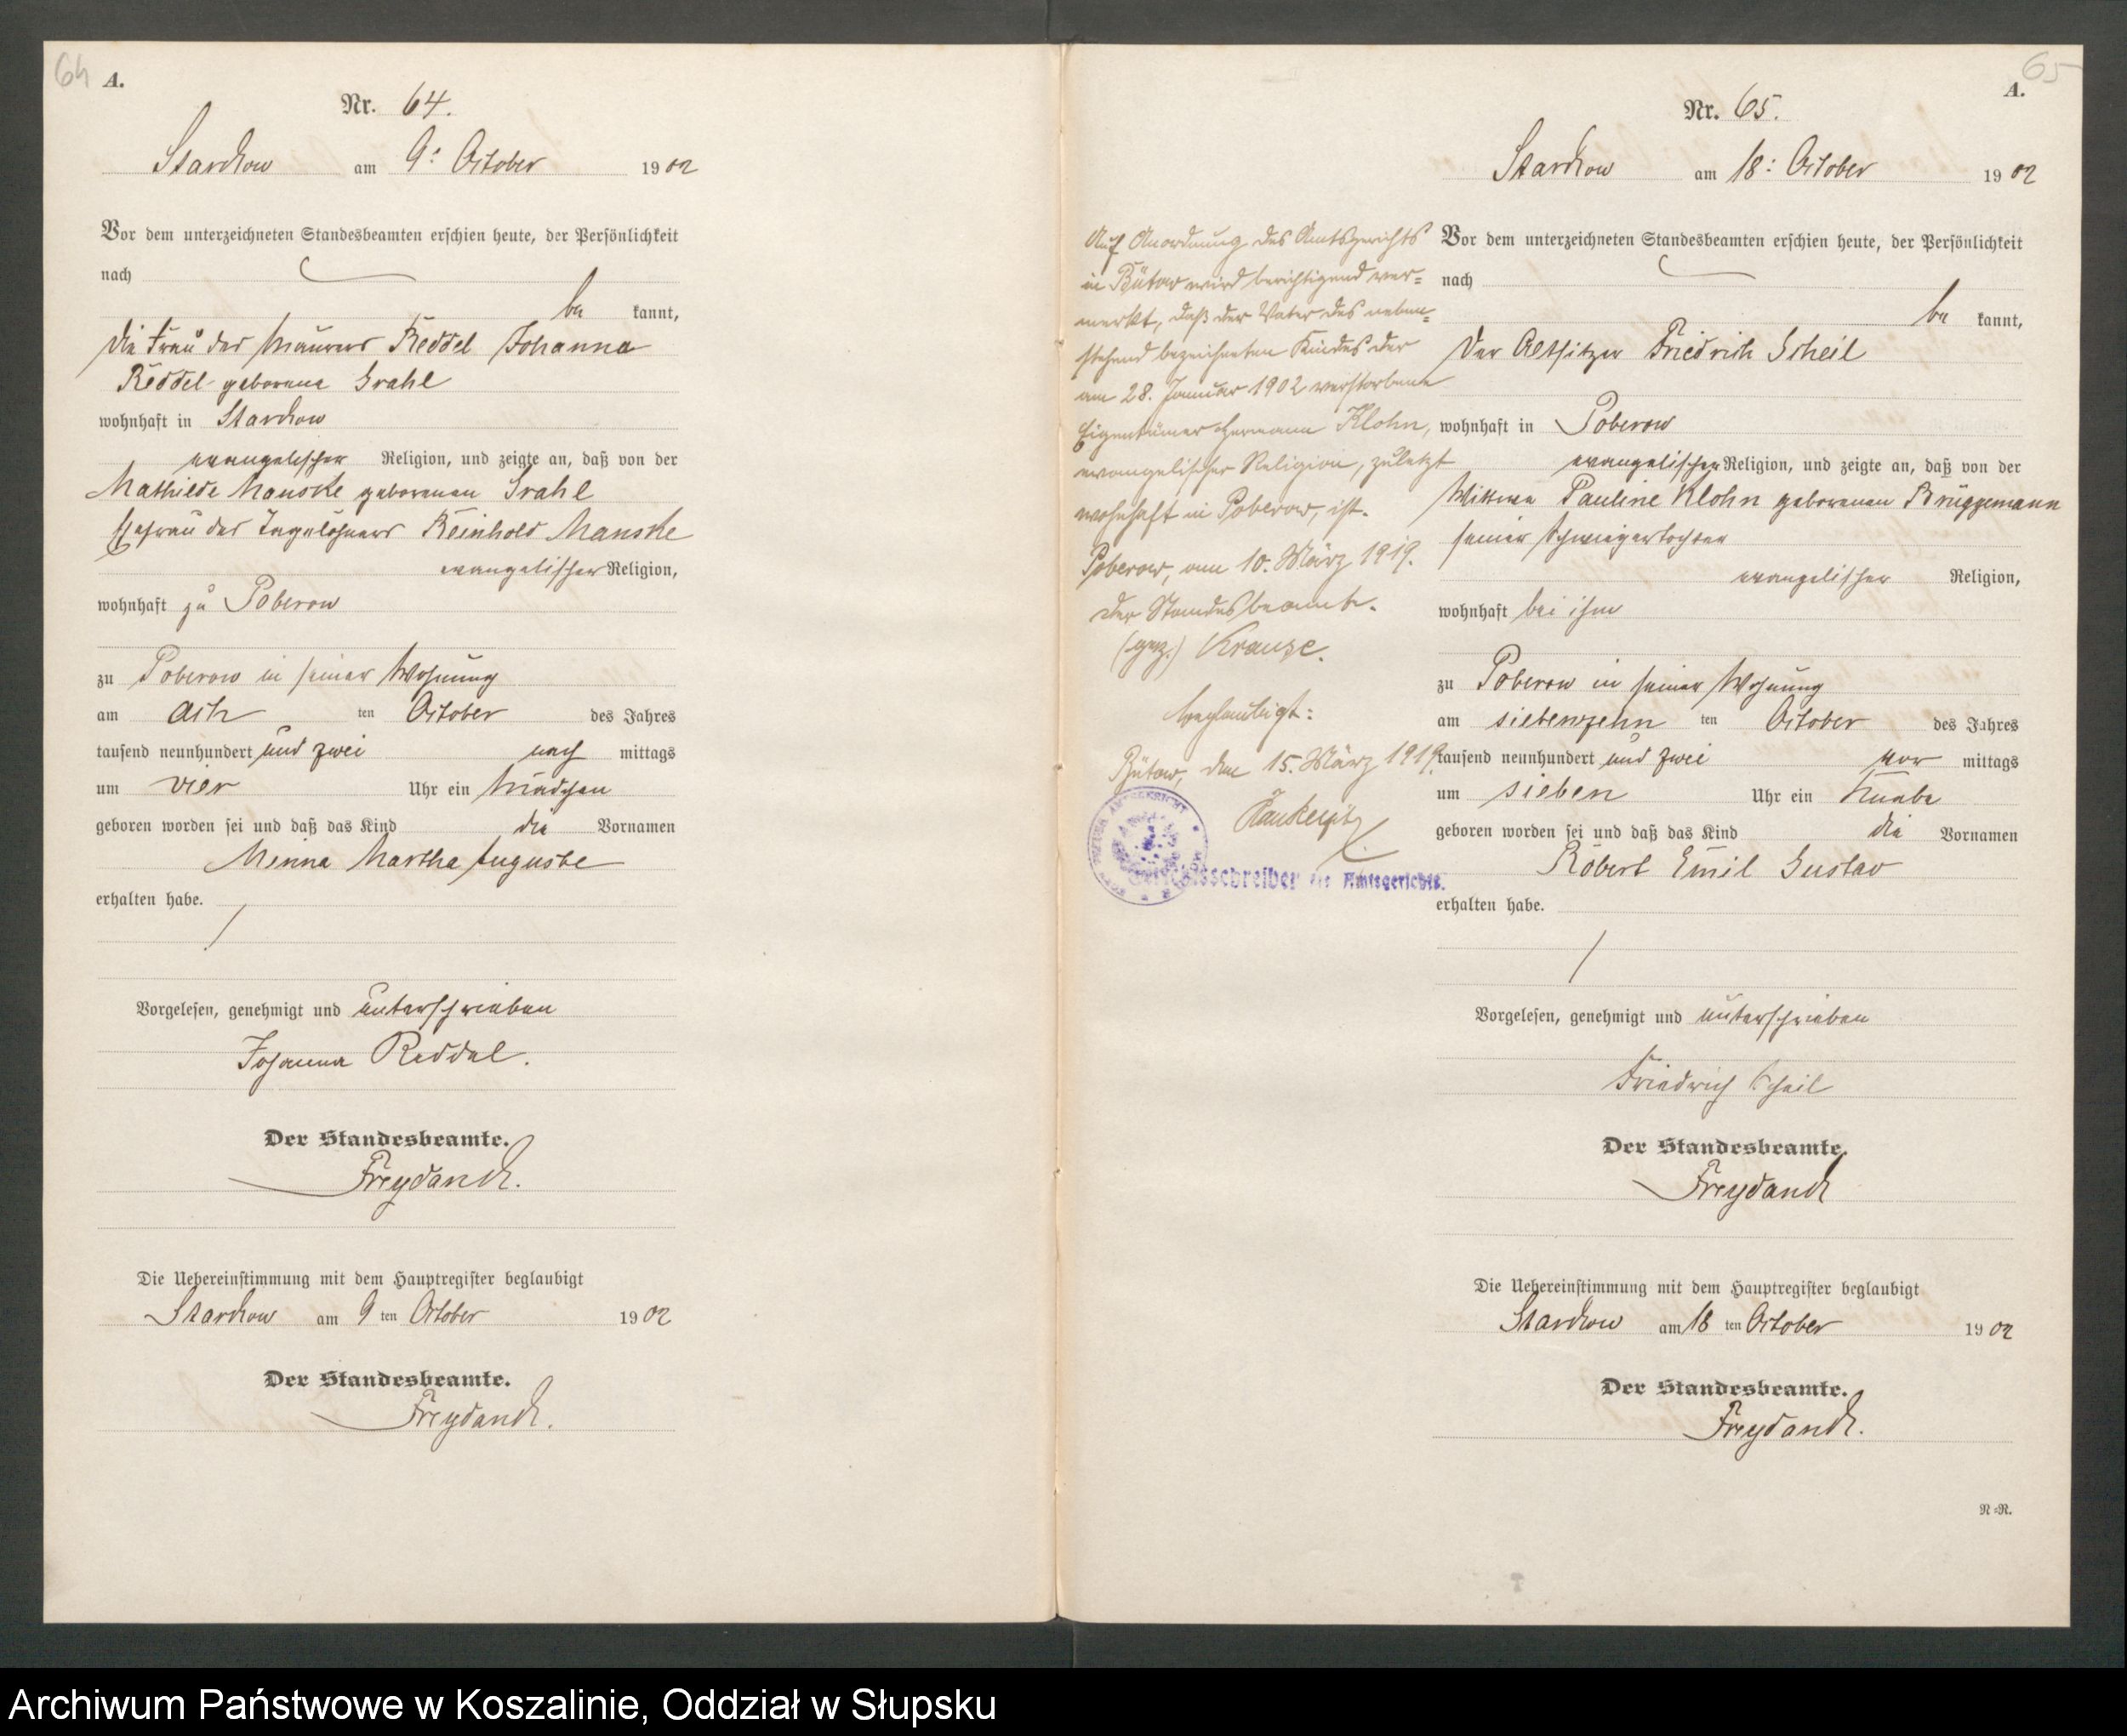 64
A.
Nr. 64.
Starckow am 9. October 1902
Vor dem unterzeichneten Standesbeamten erschien heute, der Persönlichkeit
nach
be kannt,
die Frau des Maurers Reddel Johanna
Reddel geborene Grahl
wohnhaft in Starckow
evangelischer Religion, und zeigte an, daß von der
Mathilde Manske geborenen Grahl
Ehefrau des Tagelöhners Reinhold Manske
evangelischer Religion,
wohnhaft zu Poberow
zu Poberow in seiner Wohnung
am acht ten October des Jahres
tausend neunhundert und zwei nach mittags
um vier Uhr ein Mädchen
geboren worden sei und daß das Kind die Vornamen
Minna Martha Auguste
erhalten habe.
Vorgelesen, genehmigt und unterschrieben
Johanna Reddel.
Der Standesbeamte.
Freydanck.
Die Uebereinstimmung mit dem Hauptregister beglaubigt
Starckow am 9 ten October 1902
Der Standesbeamte.
Freydanck.
65
A.
Nr. 65.
Starckow am 18. October 1902
Auf Anordnung des Amtsgerichts
in Bütow wird berichtigend ver=
merkt, daß der Vater des neben=
stehend bezeichneten Kindes der
am 28. Januar 1902 verstorbene
Eigentümer Hermann Klohn,
evangelischer Religion, zuletzt
wohnhaft in Poberow, ist.
Poberow, am 10. März 1919.
Der Standesbeamte.
(gez.) Krause.
beglaubigt:
Bütow, den 15. März 1919.
Gerichtsschreiber des Amtsgerichts.
Vor dem unterzeichneten Standesbeamten erschien heute, der Persönlichkeit
nach
be kannt,
der Altsitzer Friedrich Scheil
wohnhaft in Poberow
evangelischer Religion, und zeigte an, daß von der
Wittwe Pauline Klohn geborenen Brüggemann
seiner Schwiegertochter
evangelischer Religion,
wohnhaft bei ihm
zu Poberow in seiner Wohnung
am siebenzehn ten October des Jahres
tausend neunhundert und zwei vor mittags
um sieben Uhr ein Knabe
geboren worden sei und daß das Kind die Vornamen
Robert Emil Gustav
erhalten habe.
Vorgelesen, genehmigt und unterschrieben
Friedrich Scheil
Der Standesbeamte.
Freydanck
Die Uebereinstimmung mit dem Hauptregister beglaubigt
Starckow am 18 ten October 1902
Der Standesbeamte.
Freydanck.
R=R.
Archiwum Państwowe w Koszalinie, Oddział w Słupsku